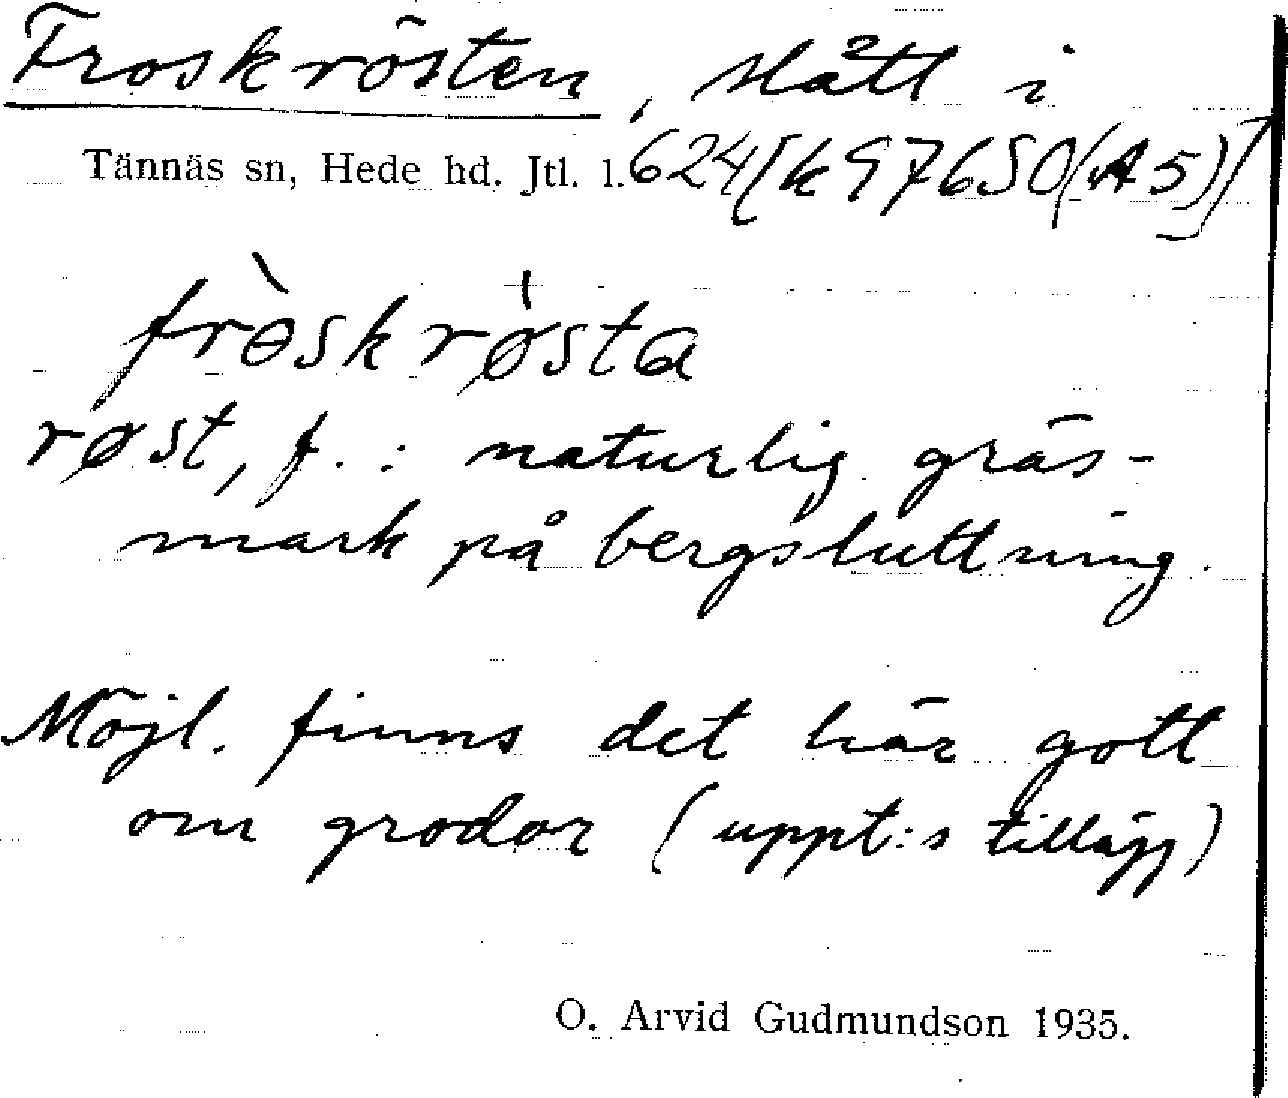 Froskrösten, slått i
Tännäs sn, Hede hd. Jtl. l. 624[k97650(A5)]
frɵ̀skrø̍sta
røst, f. : naturlig gräs-
mark på bergsluttning.
Möjl. finns det här gott
om grodor (uppt:s tillägg)
O. Arvid Gudmundson 1935.